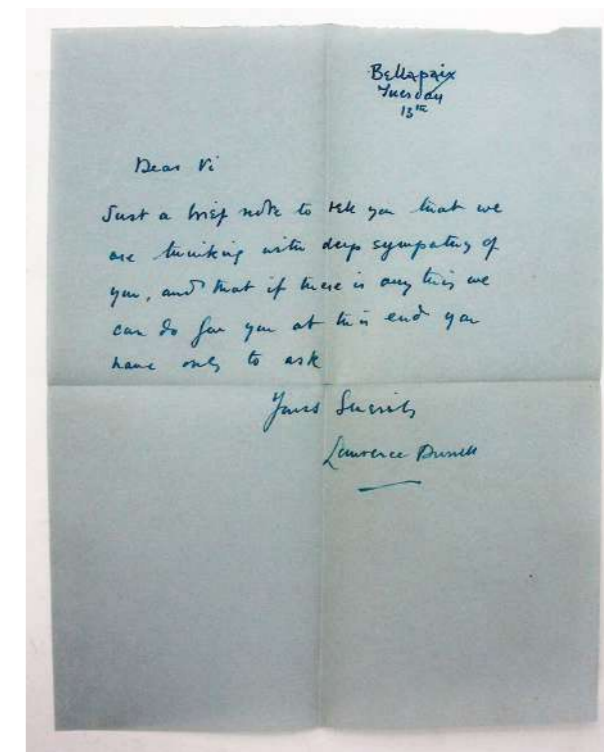 Bellapaix
Tuesday
13th
Dear Vi
Just a brief note to tell you that we
are thinking with deep sympathy of
you, and that if there is any thing we
can do for you at this end you
have only to ask
Yours Sincerely
Lawrence Durrell